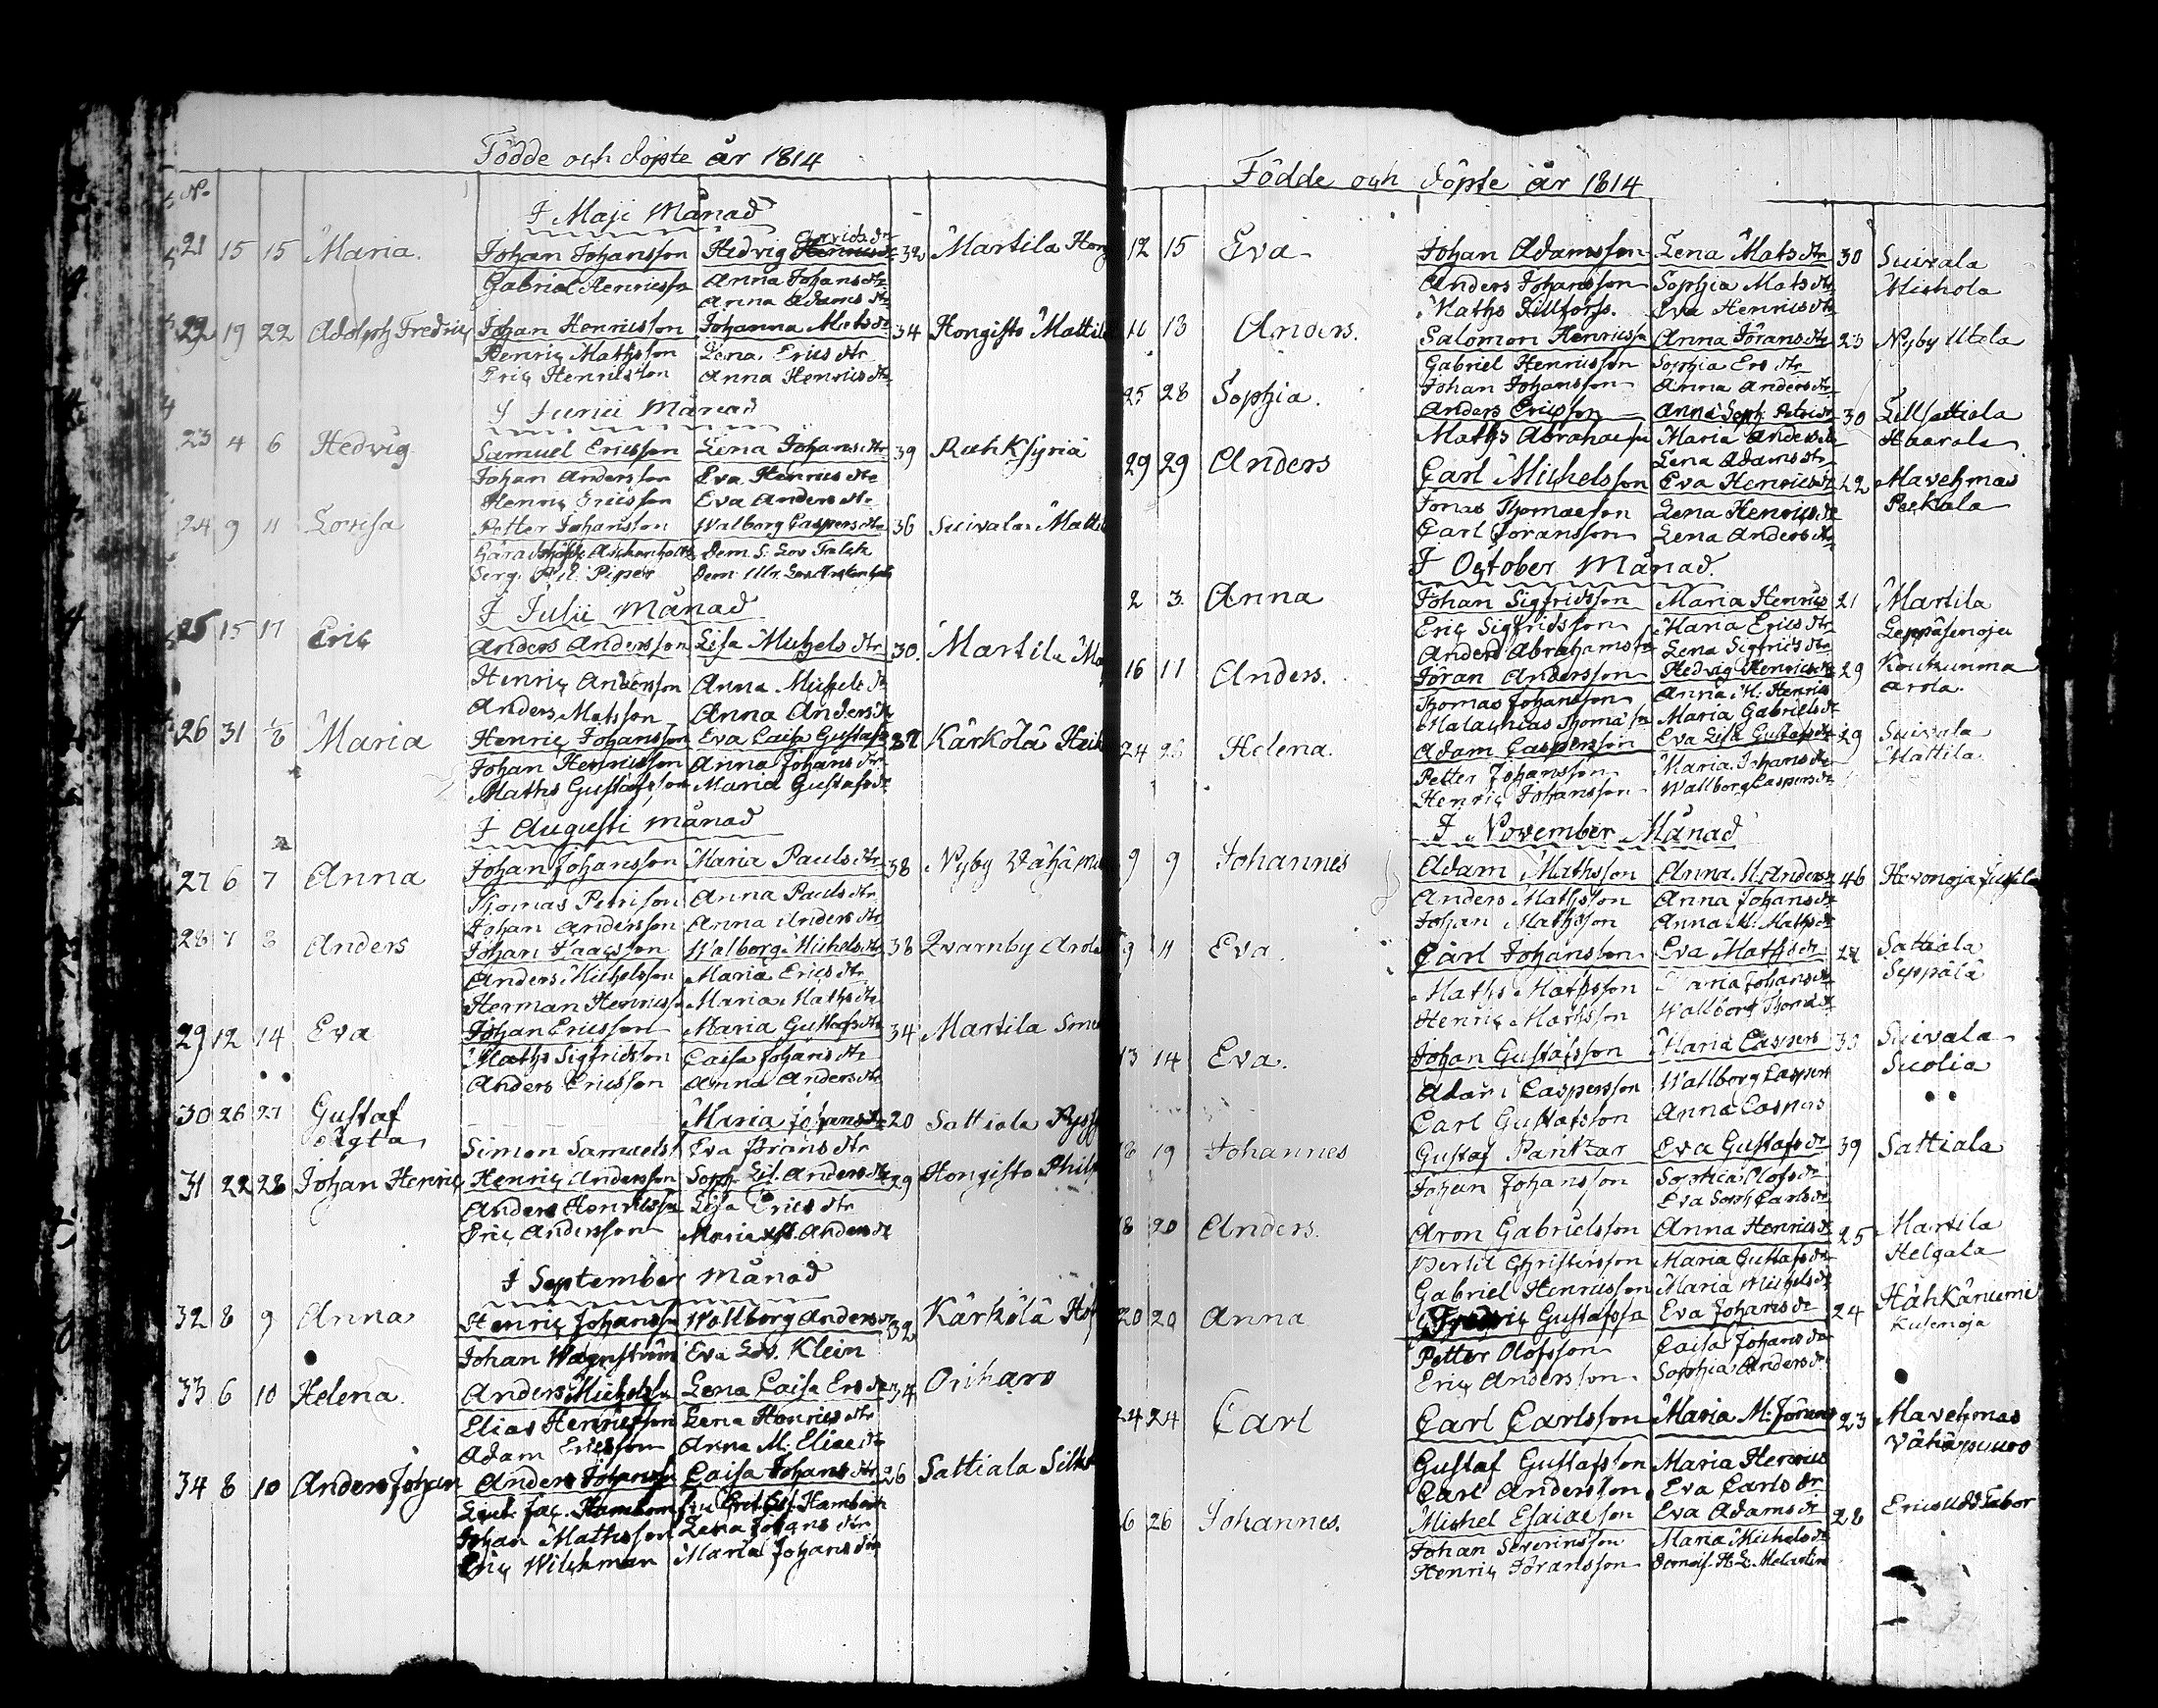 Födde och döpte år 1814
No
I Maji Månad
21 15 15 Maria. Johan Johansson Hedvig Arvids dr 32 Martila
Gabriel Henricsson Anna Johans dtr
Anna Adams dtr
22 19 22 Adolph Fredric Johan Henricsson Johanna Mats dr 34 Hongisto Mattil
Henric Mathsson Lena Erics dtr
Eric Henricsson Anna Henrics dtr
I Junii Månad
23 4 6 Hedvig Samuel Ericsson Lena Johans dtr 39 Rahksyriä
Johan Andersson Eva Henrics dtr
Henric Ericsson Eva Anders dtr
24 9 11 Lovisa Petter Johansson Walborg Caspers dtr 36 Suivala Matti
Serg. Piper
I Julii Månad
25 15 17 Eric Anders Andersson Lisa Michels dtr 30. Martila
Henric Andersson Anna Michels dr
Anders Matsson Anna Anders dr
26 31 1/8 Maria Henric Johansson Eva Caisa Gustafs Kärkölä Heik
Johan Henricsson Anna Johans dtr
Maths Gustafsson Maria Gustafs dr
I Augusti Månad
27 6 7 Anna Johan Johansson Maria Pauls dtr 38 Nyby Vähä
Thomas Anna Pauls dtr
Johan Andersson Anna Anders dtr
28 7 8 Anders Johan Isacsson Walborg Michels dtr 38 Qvarnby Arola
Anders Michelsson Maria Erics dtr
Herman Henricss Maria Maths dtr
29 12 14 Eva Johan Ericsson Maria Gustafs dtr 34 Martila
Maths Sigfridsson Caisa Johans dtr
Anders Ericsson Anna Anders dtr
30 26 27 Gustaf Maria Johans dr 20 Sattiala
oägta Simon Samuelss Eva Jörans dtr
31 22 28 Johan Henric Henric Andersson Soph. Lis. Anders dtr 29 Hongisto
Anders Henricsson Lisa Erics dtr
Eric Andersson Maria Anders dr
I September Månad
32 8 9 Anna Henric Johansson Wallborg Anders dr 32 Kärkölä
Johan Wagnström Eva Lov. Klein
33 6 10 Helena. Anders Michelss Lena Caisa Ers dr 34 Oiharo
Elias Henricsson Lena Henrics dtr
Adam Ericsson Anna M. Eliae dr
34 8 10 Anders Johan Anders Johansson Caisa Johans dtr 26 Sattiala
Johan Mathsson Lena Johans dtr
Eric Wilckman Maria Johans dtr
Födde och döpte år 1814
12 15 Eva Johan Adamsson Lena Mats dtr 30 Suivala
Anders Johansson Sophia Mats dtr Mickola
Maths Eva Henrics dtr
11 13 Anders. Salomon Henricsson Anna Jörans dtr 23 Nyby Utela
Gabriel Henricsson Sophia Ers dtr
Johan Johansson Anna Anders dtr
25 28 Sophia. Anders Ericsson Anna Soph. 30 Lillsattiala
Maths Abrahamss Maria Anders dr Haarala
Lena Adams dtr
29 29 Anders Carl Michelsson Eva Henrics dr 42 Mavehmas
Jonas Thomaeson Lena Henrics dr Peckala
Carl Göransson Lena Anders dtr
I October Månad.
2 3 Anna Johan Sigfridsson Maria Henrics 21 Martila
Eric Sigfridsson Maria Erics dtr Leppäsenoja
Anders Abrahamsson Lena Sigfrids dtr
16 17 Anders. Jöran Andersson Hedvig Henrics dr 29 Koukunma
Thomas Johansson Anna M. Henrics Arola.
Malachias Thomas Maria Gabriels dr
24 Helena. Adam Caspersson Eva Lisa Gustafs dr 29 Suivala
Petter Johansson Maria Johans dr Mattila.
Henric Johansson Wallborg Caspers dr
I November Månad
9 9 Johannes Adam Mathsson Anna M. Anders 46 Havonoja
Anders Mathsson Anna Johans dr
Johan Mathsson Anna M. Maths dr
9 11 Eva. Carl Johansson Eva Maths dr Sattiala
Maths Mathsson Maria Johans dr Seppälä
Henric Mathsson Wallborg Thomae dr
13 14 Eva. Johan Gustafsson Maria Caspers Suivala
Adam Caspersson Wallborg Caspers Sucolia
Carl Gustafsson Anna Caspers
18 19 Johannes Gustaf Pantzar Eva Gustafs dr 39 Sattiala
Johan Johansson Sophia Olofs dr
Eva Soph. Carls dr
18 20 Anders. Aron Gabrielsson Anna Henrics dr 25 Martila
Bertil Christersson Maria Gustafs dr Helgata
Gabriel Henricsson Maria Michels dr
20 20 Anna Fredric Gustafsson Eva Johans dr 24 Hähkäniemi
Petter Olofsson Caisa Johans dr Kusenoja
Eric Andersson Sophia Anders dr
24 24 Carl Carl Carlsson Maria M. Jörans 23 Mavehmas
Gustaf Gustafsson Maria Henrics Vähäpuuro
Carl Andersson. Eva Carls dr
26 26 Johannes. Michel Esaiaeson Eva Adams dr 28
Johan Severinsson Maria Michels dr
Henric Jöransson